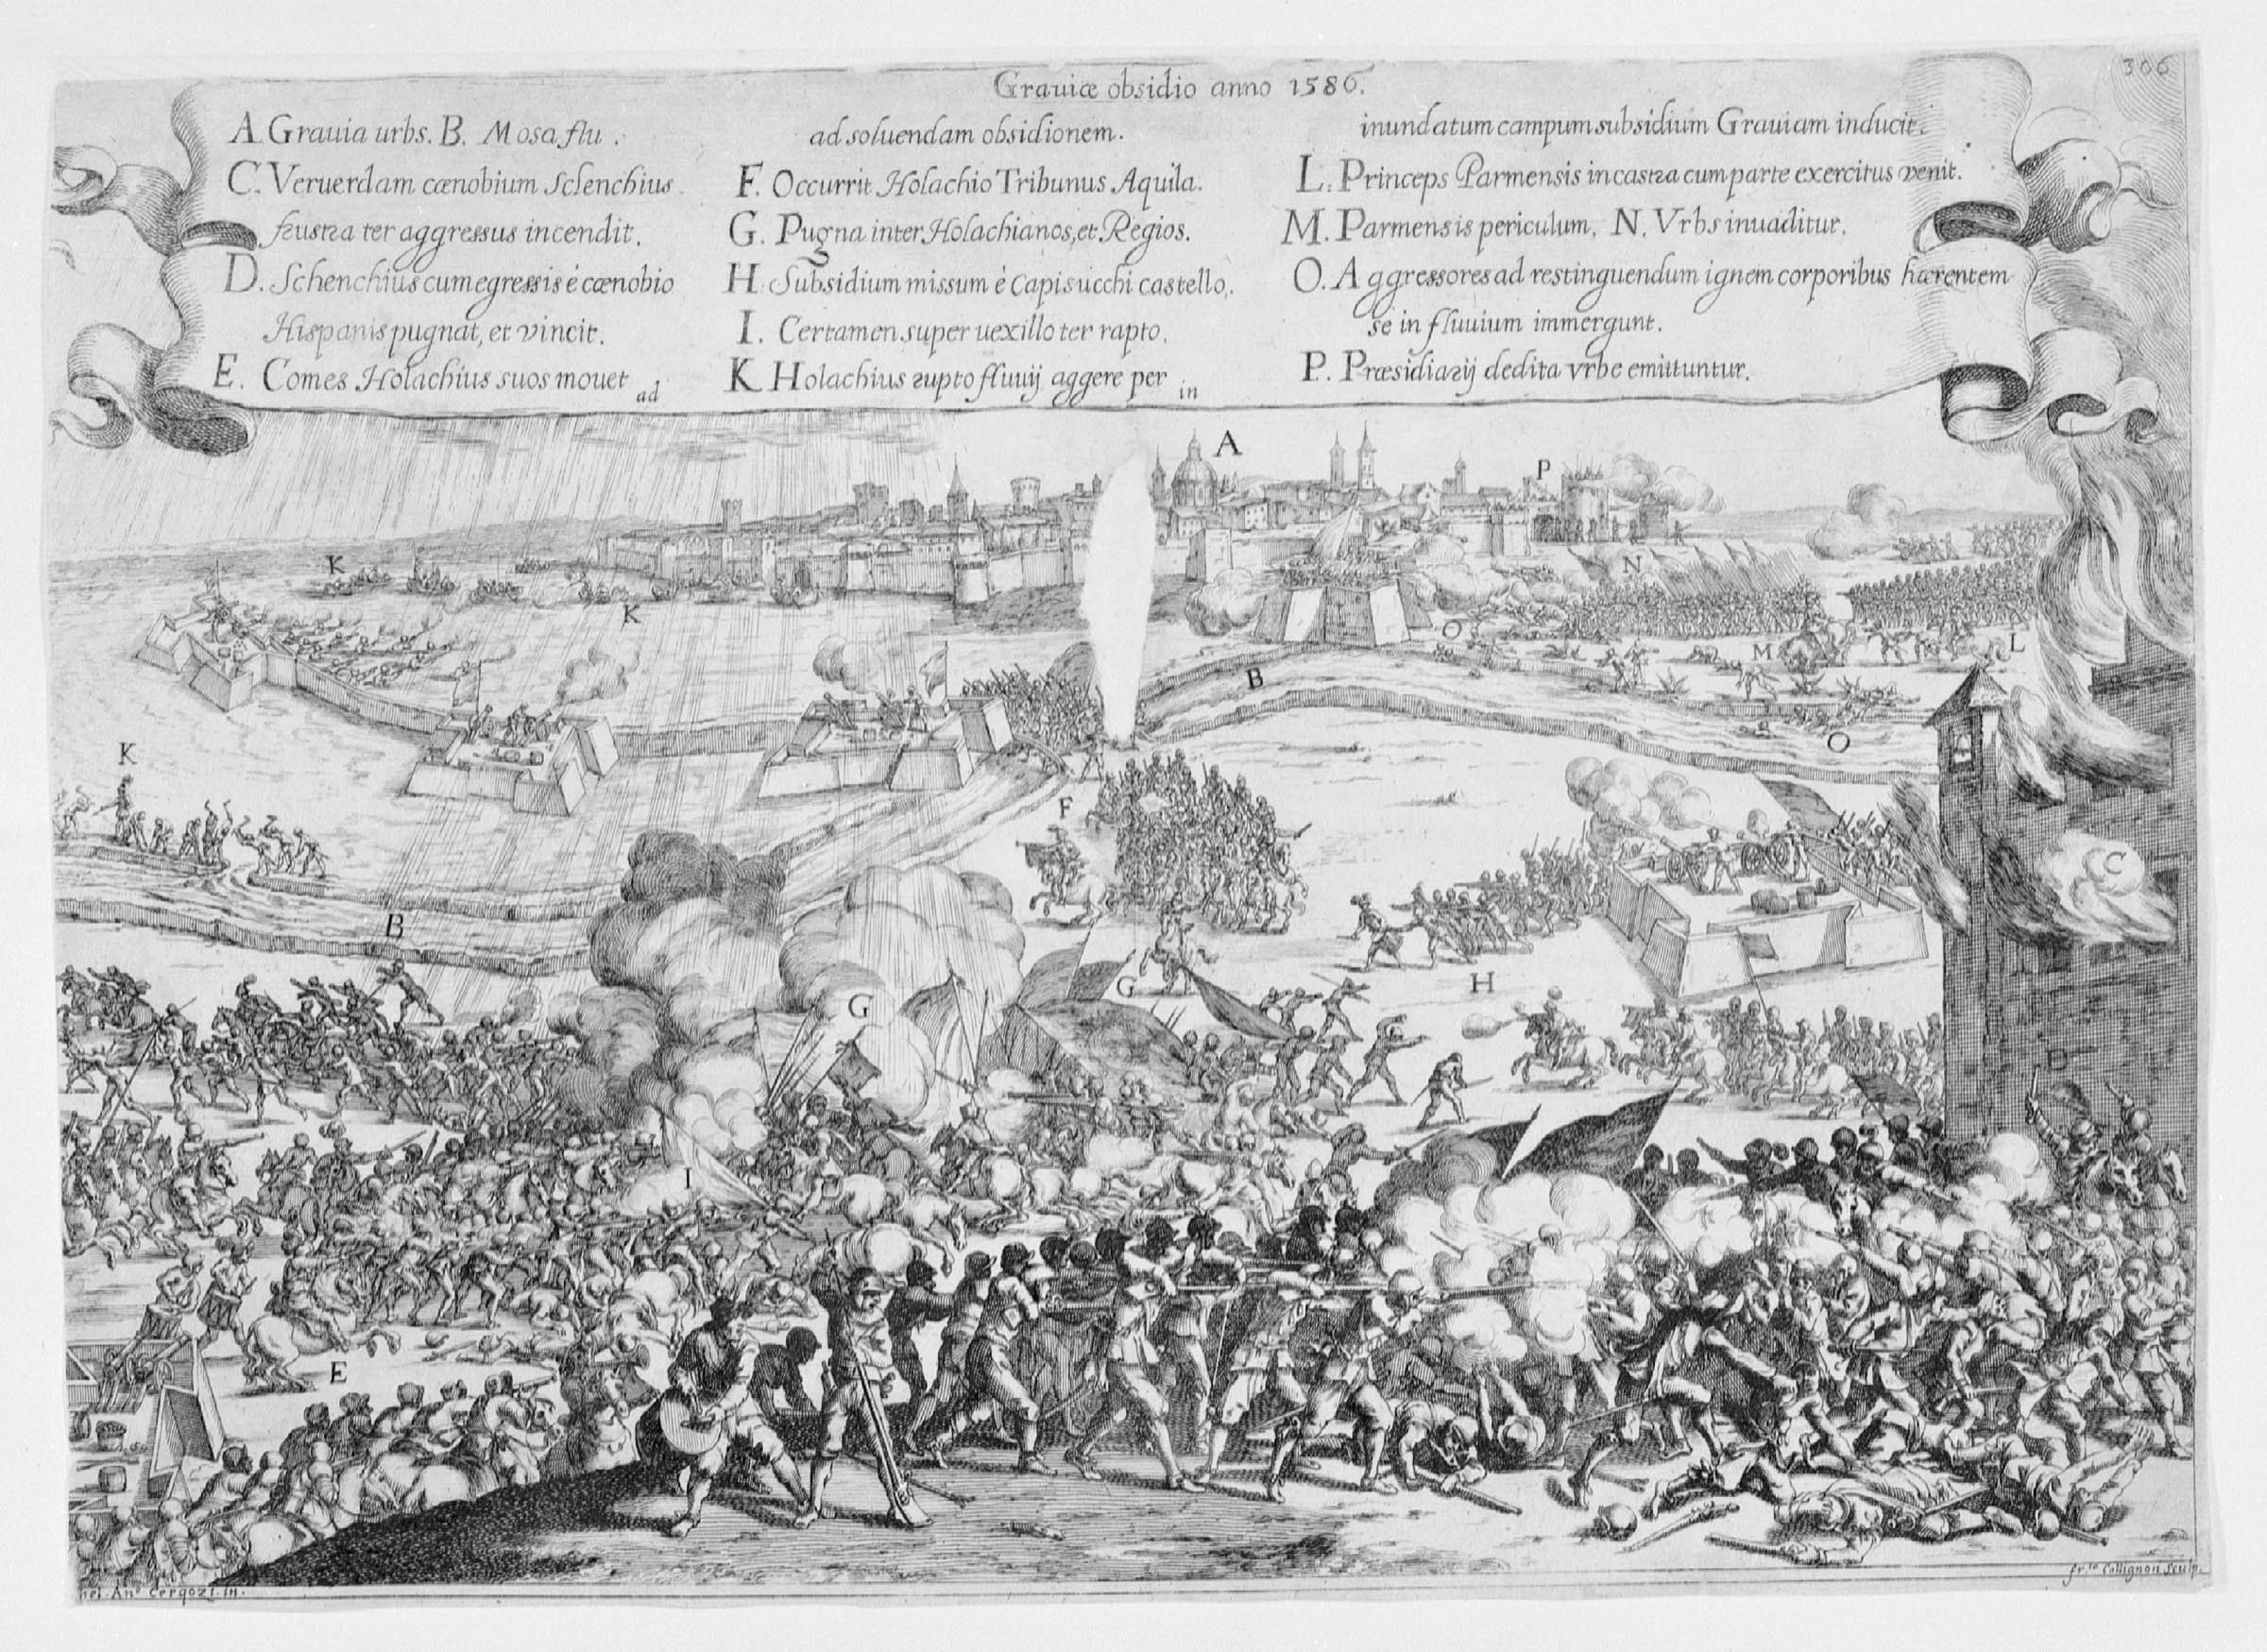 306
Grauiæ obsidio anno 1586.
A Grauia urbs. B. Mosa flu.
C. Veruerdam cœnobium Sclenchius
frustra ter aggressus incendit.
D. Schenchius cum egressis è cœnobio
Hispanis pugnat, et vincit.
E. Comes Holachius suos mouet
ad
ad soluendam obsidionem.
F. Occurrit Holachio Tribunus Aquila.
G. Pugna inter Holachianos, et Regios.
H. Subsidium missum è Capisucchi castello.
I. Certamen super uexillo ter rapto.
K Holachius rupto fluuij aggere per
in
inundatum campum subsidium Grauiam inducit.
L. Princeps Parmensis in castra cum parte exercitus venit.
M. Parmensis periculum. N. Vrbs inuaditur.
O. Aggressores ad restinguendum ignem corporibus hærentem
se in fluuium immergunt.
P. Præsidiarij dedita vrbe emittuntur.
A
P
K
N
K
O
L
M
B
O
K
F
C
B
G
H
G
D
I
E
An.º Cerqozi. in.
fr.co Collignon Sculp.